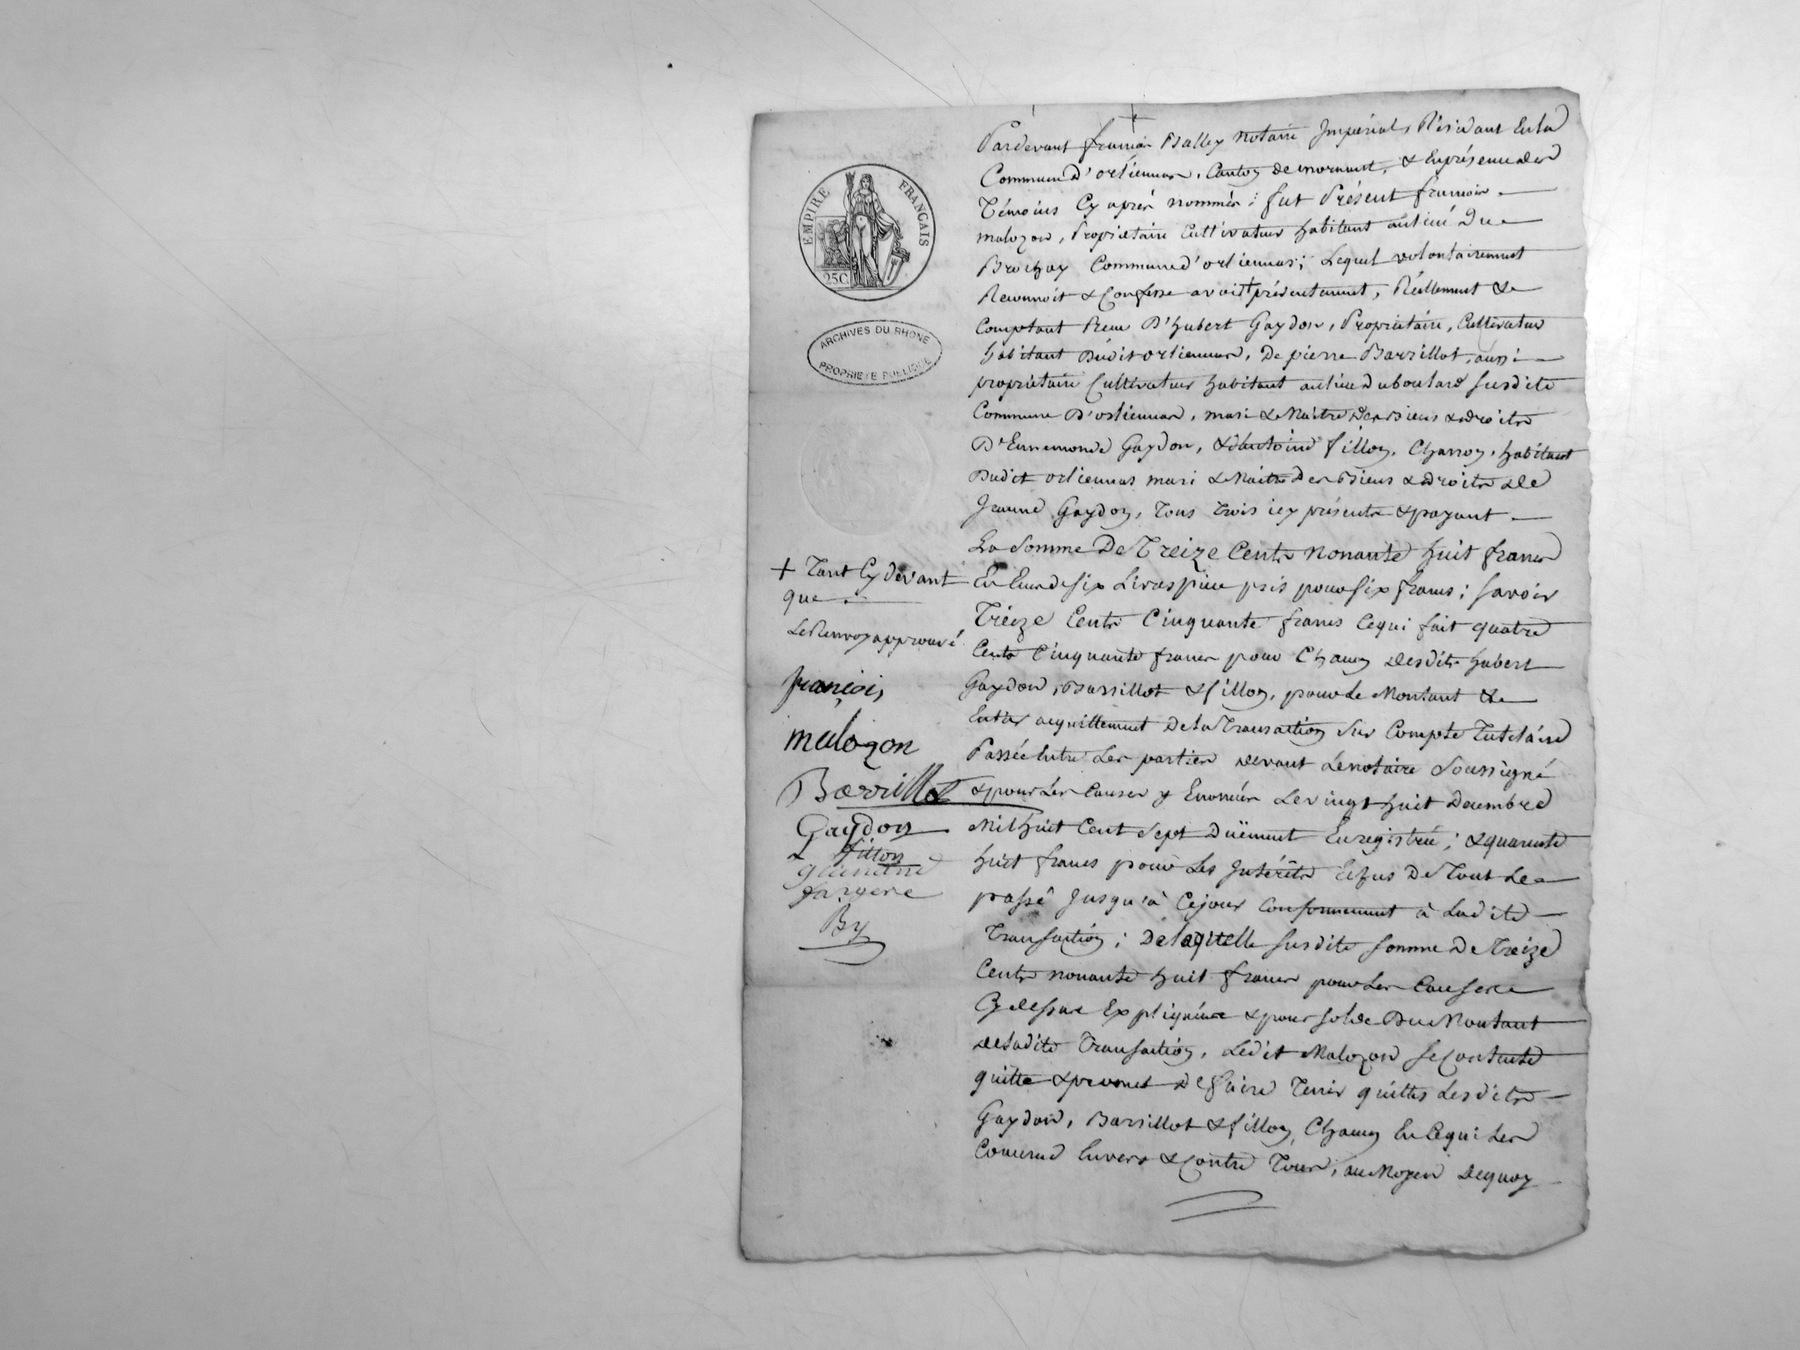 EMPIRE FRANÇAIS
25C
ARCHIVES DU RHONE
PROPRIETE PUBLIQUE
Pardevant françois Balley Notaire Impérial, Résidant En la
Commune d'orliennas, Canton de mornant, & En présence des
Témoins Cy après nommés; fut Présent françois
malozon, Propriétaire Cultivateur habitant au lieu Du
Brochay Commune d'orliennas; Lequel volontairement
Reconnoit & Confesse avoir + présentement, Réellement &
Comptant Reçu D'hubert Gaydon, Propriétaire, Cultivateur
habitant Dudit orliennas, De pierre Barrillot, aussi
propriétaire Cultivateur habitant au lieu du boulard susdite
Commune D'orliennas, mari & Maitre des biens & droits
D'Ennemonde Gaydon, & d'antoine fillon, Charron, habitant
Dudit orliennas mari & Maitre Des Biens & droits de
Jeanne Gaydon, Tous trois icy présents & payant
La Somme De Treize Cents Nonante huit francs
En Ecus de six Livres pièce pris pour six francs; savoir
Treize Cents Cinquante francs Cequi fait quatre
Cents Cinquante francs pour Chacun desdits hubert
Gaydon, Barrillot & fillon, pour le Montant &
Entier acquittement De la Transaction Sur Compte Tutelaire
Passée Entre Les parties devant Le notaire Soussigné
& pour Les Causes y Enoncées Le vingt huit Decembre
Mil huit Cent Sept Duëment Enregistrée; & quarante
huit francs pour Les Intérêts Echus De Tout Le
passé Jusqu'à Cejour Conformement à Ladite
Transaction; De laquelle susdite somme De Treize
Cents nonante huit francs pour Les Causes
Cy dessus Expliquées & pour solde Du Montant
de ladite Transaction, Ledit Malozon se Contente
quitte & promet De faire Tenir quittes Lesdits
Gaydon, Barrillot & fillon, Chacun En Cequi Les
Concerne Envers & Contre Tous, au Moyen Dequoy
+ Tant Cy devant
que
Le Renvoy approuvé
françois
malozon
Barrillot
Gaydon
fillon
By